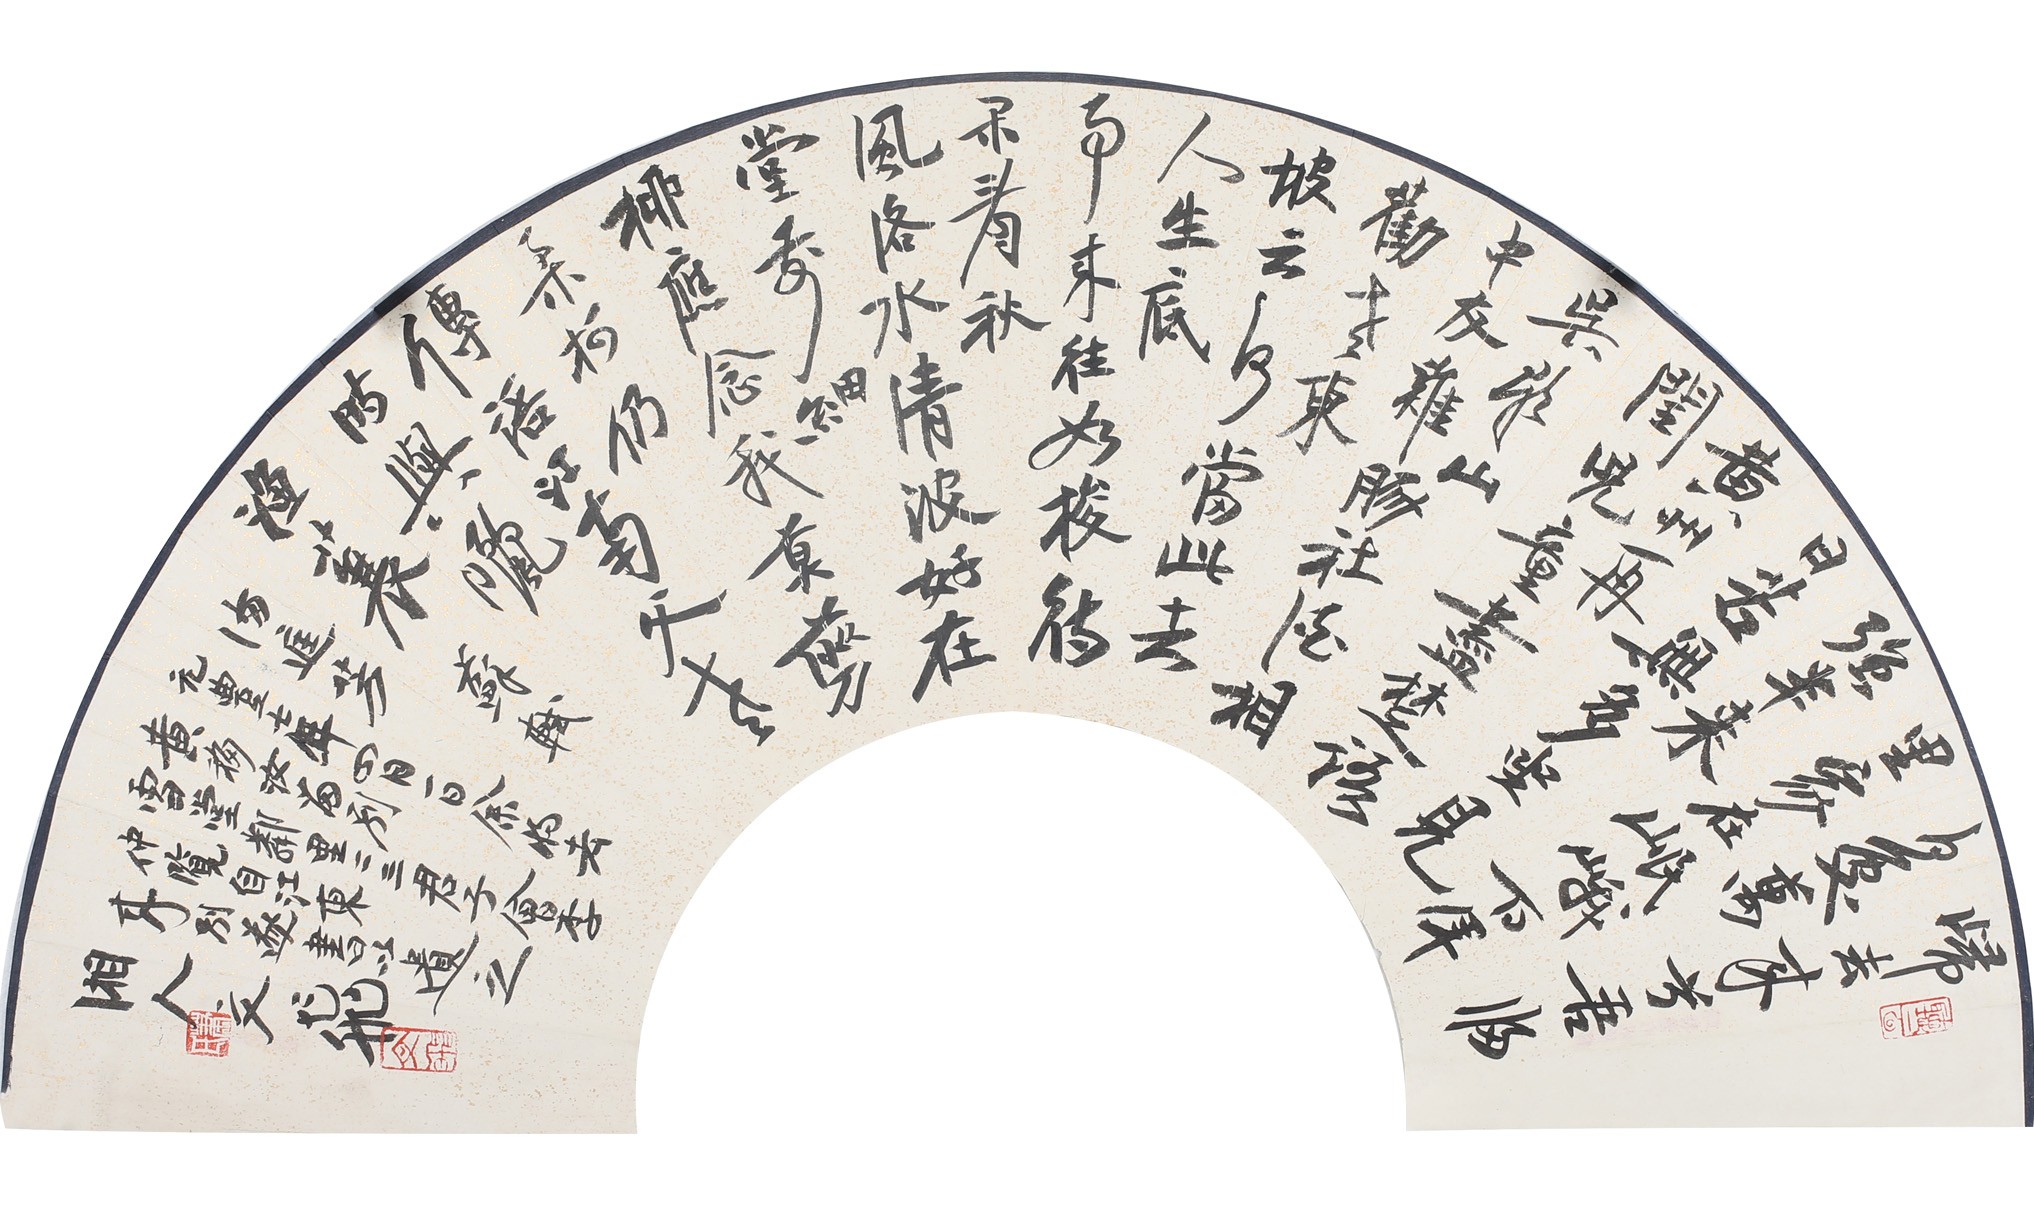 歸去來兮吾歸
何處萬
里家在岷峨百年
強半來
日苦無多坐見
黄州再
閏兒童盡楚語
吳歌山
中友雞豚社酒相
勸老東
坡云何當此去
人生底
事來往如梭待
閑看秋
風洛水清波好在
堂前細
柳應念我莫剪
柔柯仍
傳語江南父老
時與曬
漁蓑 蘇軾
滿庭芳
元豐七年四月一日余將去
黄移汝留别
雪堂鄰里二三君子會李
仲覽自江東
來别遂書以遺之
湘人文